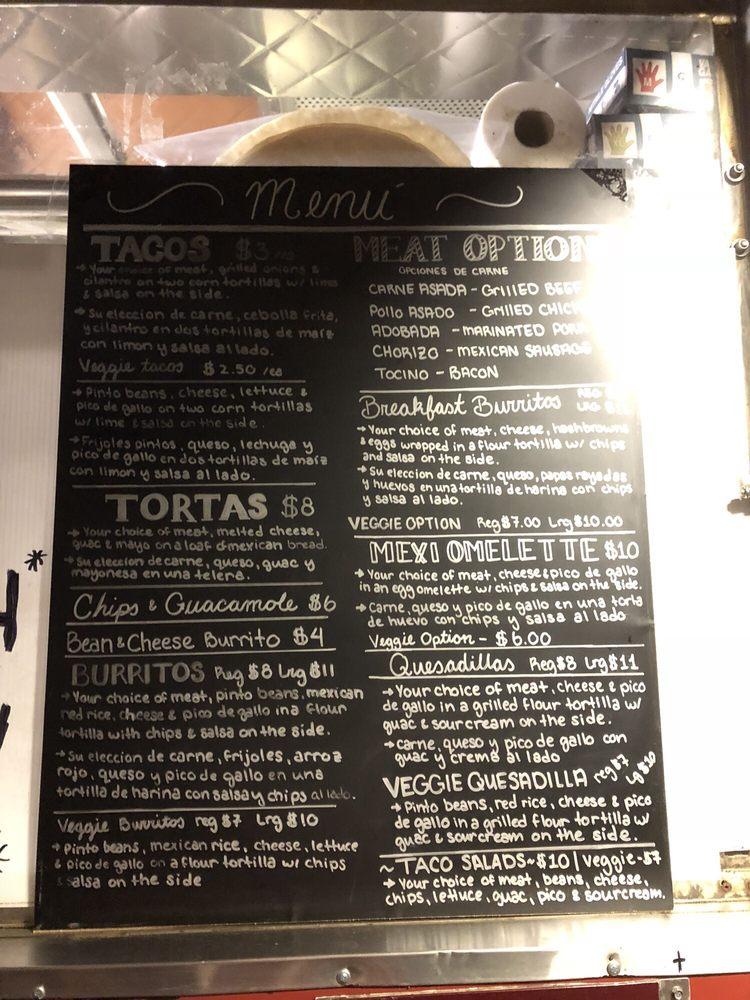 Menú
TACOS $3 /ea
→ Your choice of meat, grilled onions &
cilantro on two corn tortillas w/ lime
& salsa on the side.
→ Su eleccion de carne, cebolla frita,
y cilantro en dos tortillas de maiz
con limon y salsa al lado.
Veggie tacos $2.50 /ea
→ Pinto beans, cheese, lettuce &
pico de gallo on two corn tortillas
w/ lime & salsa on the side.
→ Frijoles pintos, queso, lechuga y
pico de gallo en dos tortillas de maiz
con limon y salsa al lado.
TORTAS $8
→ Your choice of meat, melted cheese,
guac & mayo on a loaf of mexican bread.
→ Su eleccion de carne, queso, guac y
mayonesa en una telera.
Chips & Guacamole $6
Bean & Cheese Burrito $4
BURRITOS Reg $8 Lrg $11
→ Your choice of meat, pinto beans, mexican
red rice, cheese & pico de gallo in a flour
tortilla with chips & salsa on the side.
→ Su eleccion de carne, frijoles, arroz
rojo, queso y pico de gallo en una
tortilla de harina con salsa y chips al lado.
Veggie Burritos reg $7 Lrg $10
→ Pinto beans, mexican rice, cheese, lettuce
& pico de gallo on a flour tortilla w/ chips
& salsa on the side
MEAT OPTION
OPCIONES DE CARNE
CARNE ASADA - GrillED BEEF
Pollo ASADO - GRILLED CHICK
ADOBADA - MARINATED PORK
CHORIZO - MEXICAN SAUSAGE
TOCINO - BACON
Breakfast Burritos REG
LRG
→ Your choice of meat, cheese, hashbrowns
& eggs wrapped in a flour tortilla w/ chips
and salsa on the side.
→ Su eleccion de carne, queso, papas rayadas
y huevos en una tortilla de harina con chips
y salsa al lado.
VEGGIE OPTION Reg $7.00 Lrg $10.00
MEXI OMELETTE $10
→ Your choice of meat, cheese & pico de gallo
in an egg omelette w/ chips & salsa on the side.
→ Carne, queso y pico de gallo en una torta
de huevo con chips y salsa al lado
Veggie Option - $6.00
Quesadillas Reg $8 Lrg $11
→ Your choice of meat, cheese & pico
de gallo in a grilled flour tortilla w/
guac & sour cream on the side.
→ Carne, queso y pico de gallo con
guac y crema al lado
VEGGIE QUESADILLA reg $7
Lg $10
→ Pinto beans, red rice, cheese & pico
de gallo in a grilled flour tortilla w/
guac & sour cream on the side.
~ TACO SALADS ~ $10 | Veggie - $7
→ Your choice of meat, beans, cheese,
chips, lettuce, guac, pico & sour cream.
M